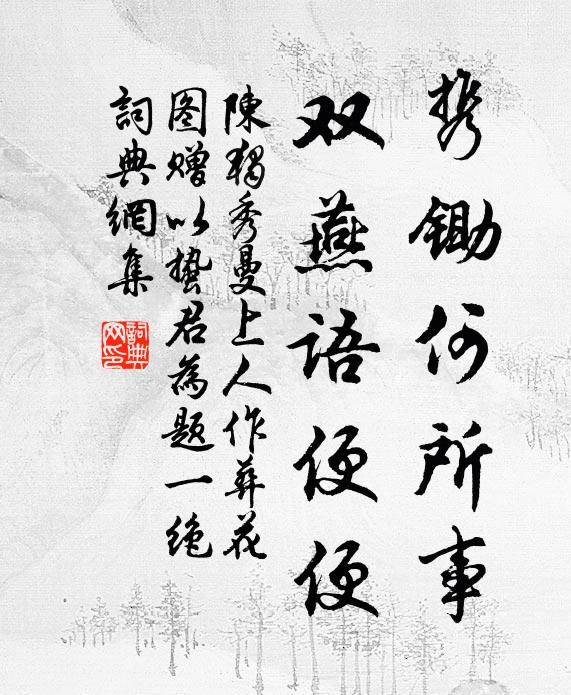 携锄何所事
双燕语便便
陳独秀曼上人作葬花
图赠以蛰君為题一绝
詞典網集
詞典网印